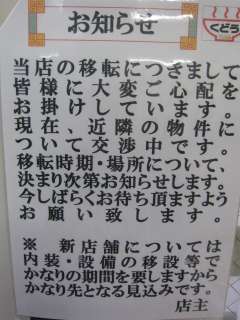 くどう
お知らせ
当店の移転につきまして
皆様に大変ご心配を
お掛けしています。
現在、近隣の物件に
ついて交渉中です。
移転時期・場所について、
決まり次第お知らせします。
今しばらくお待ち頂きますよう
お願い致します。
※　新店舗については
内装・設備の移設等で
かなりの期間を要しますから
かなり先となる見込みです。
店主